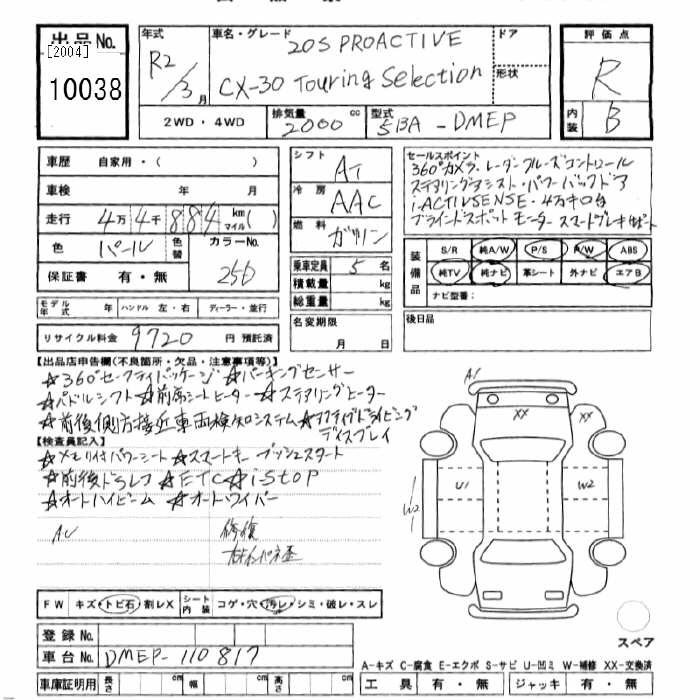 出品No.
[2004]
10038
年式
R2/3月
車名・グレード
20S PROACTIVE
CX-30 Touring Selection
ドア
形状
評価点
R
内装
B
2WD・4WD
排気量
2000 cc
型式
5BA-DMEP
車歴 自家用・( )
車検 年 月
走行 4万4千884 km マイル( )
色 パール
色替
カラーNo.
25D
保証書 有・無
モデル年式 年 ハンドル 左・右 ディーラー・並行
リサイクル料金 9720 円 預託済
シフト AT
冷房 AAC
燃料 ガソリン
乗車定員 5 名
積載量 kg
総重量 kg
名変期限
月 日
セールスポイント
360°カメラ・レーダークルーズコントロール
ステアリングアシスト・パワーバックドア
i-ACTIVSENSE・4万キロ台
ブラインドスポットモニター スマートブレーキサポート
装備品
S/R 純A/W P/S P/W ABS
純TV 純ナビ 革シート 外ナビ エアB
ナビ型番:
後日品
【出品店申告欄(不良箇所・欠品・注意事項等)】
☆360°セーフティパッケージ ☆パーキングセンサー
☆パドルシフト ☆前席シートヒーター ☆ステアリングヒーター
☆前後側方接近車両検知システム ☆アクティブドライビング
ディスプレイ
【検査員記入】
☆メモリ付パワーシート ☆スマートキー プッシュスタート
☆前後ドラレコ ☆ETC ☆i-STOP
☆オートハイビーム ☆オートワイパー
AU
修復
A1
XX
XX
U1
W2
W2
スペア
FW キズ・トビ石・割レX
シート内装 コゲ・穴・汚レ・シミ・破レ・スレ
登録No.
車台No. DMEP-110817
車庫証明用 長さ cm 幅 cm 高さ cm
A-キズ C-腐食 E-エクボ S-サビ U-凹ミ W-補修 XX-交換済
工具 有・無 ジャッキ 有・無